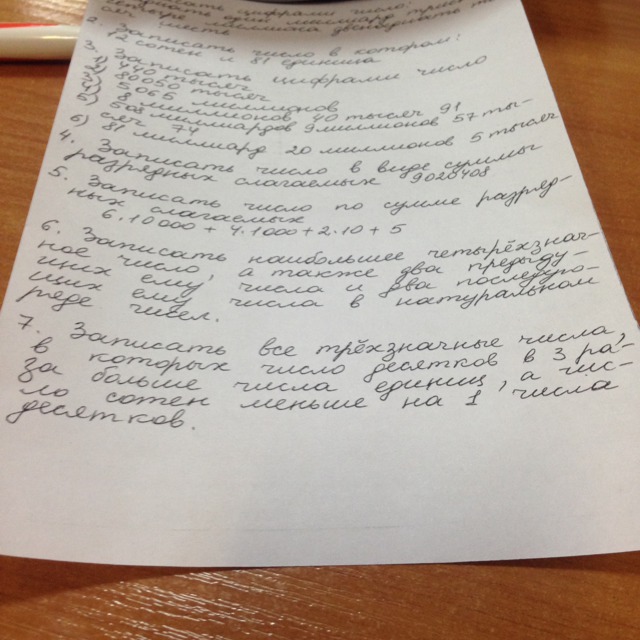 записать цифрами число:
один миллиард
миллиона двести
2. Записать число в котором:
12 сотен и 81 единица
3. Записать цифрами число
тысяч
80050 тысяч
5065 миллионов
миллионов 40 тысяч 91
миллиардов 9 миллионов 57 ты-
сяч 74
6) 81 миллиард 20 миллионов 5 тысяч
4. Записать число в виде суммы
разрядных слагаемых 9020408
5. Записать число по сумме разряд-
ных слагаемых
6·10000 + 4·1000 + 2·10 + 5
6. Записать наибольшее четырёхзнач-
ное число, а также два предыду-
щих ему числа и два последую-
щих ему числа в натуральном
ряде чисел.
7. Записать все трёхзначные числа,
в которых число десятков в 3 ра-
за больше числа единиц, а чис-
ло сотен меньше на 1 числа
десятков.